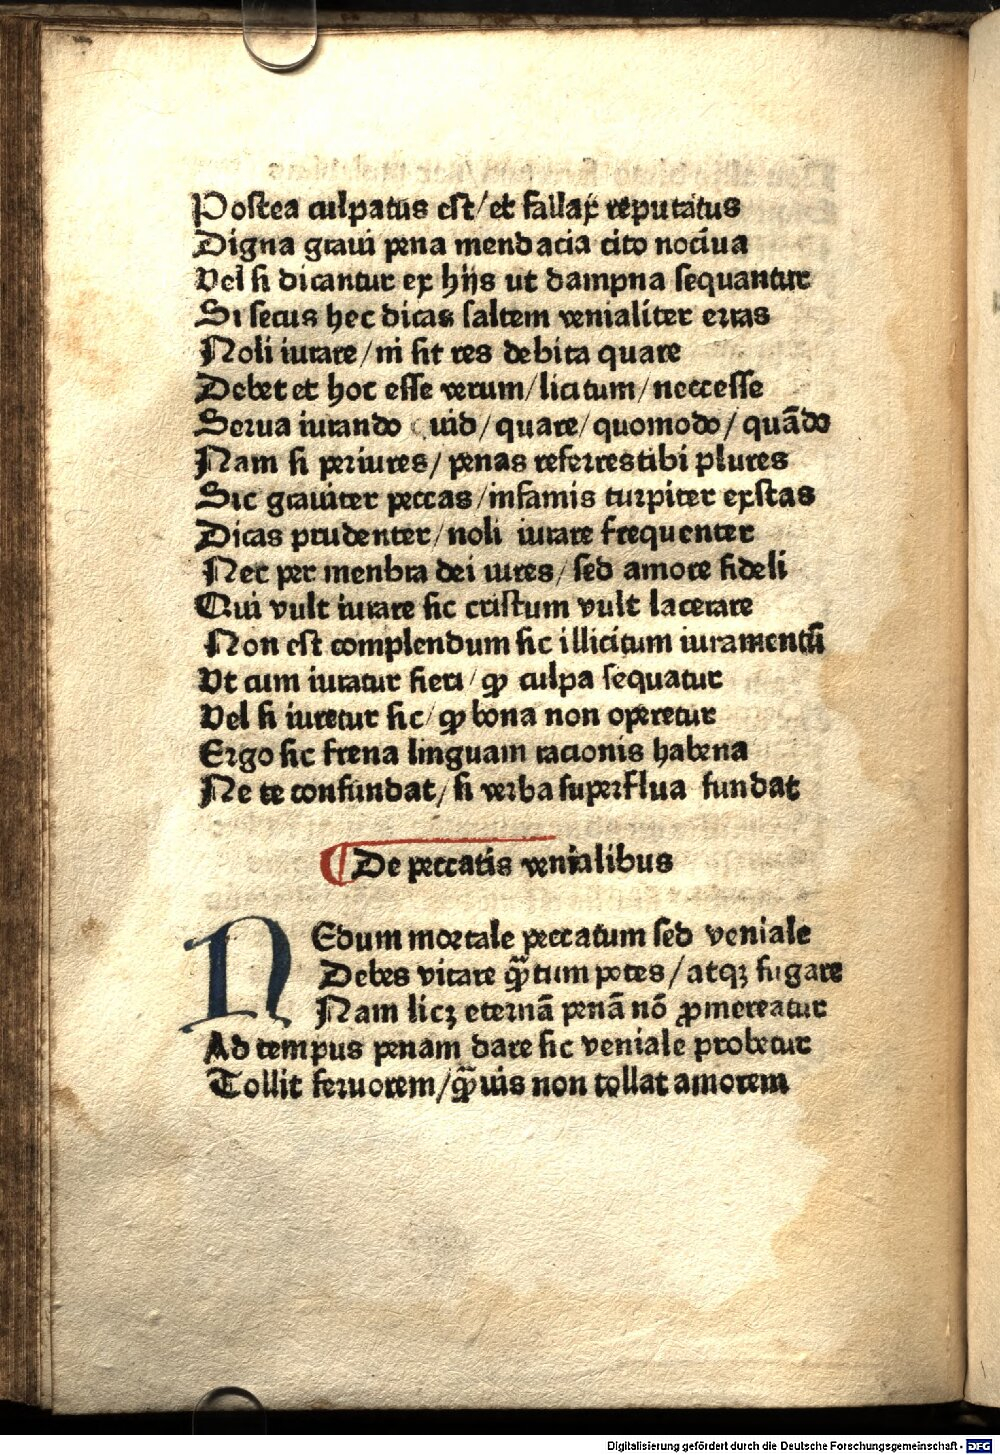 Postea culpatus est/et fallax reputatus
Digna graui pena mendacia cito nociua
Vel si dicantur ex hijs ut dampna sequantur
Si secus hec dicas saltem venialiter erras
Noli iurare/ni sit res debita quare
Debet et hoc esse verum/licitum/neccesse
Serua iurando quid/quare/quomodo/quādo
Nam si periures/penas referres tibi plures
Sic grauiter peccas/infamis turpiter exstas
Dicas prudenter/noli iurare frequenter
Nec per menbra dei iures/sed amore fideli
Qui vult iurare sic cristum vult lacerare
Non est complendum sic illicitum iuramentū
Vt cum iuratur fieri/ꝙ culpa sequatur
Vel si iuretur sic/ꝙ bona non operetur
Ergo sic frena linguam racionis habena
Ne te confundat/si verba superflua fundat
De peccatis venialibus
NEdum mortale peccatum sed veniale
Debes vitare ꝙ̄tum potes/atqꝫ fugare
Nam licꝫ eternā penā nō ꝓmereatur
Ad tempus penam dare sic veniale probetur
Tollit feruorem/ꝙ̄uis non tollat amorem
Digitalisierung gefördert durch die Deutsche Forschungsgemeinschaft - DFG